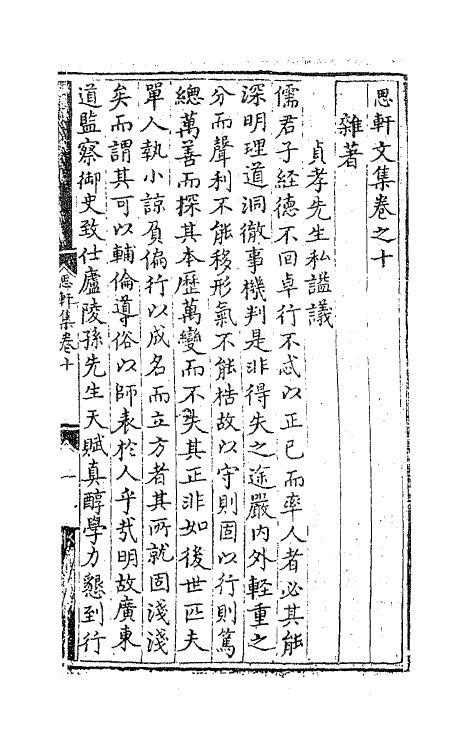 思軒文集卷之十
雜著
貞孝先生私謚議
儒君子經德不回卓行不忒以正已而率人者必其能
深明理道洞徹事機判是非得失之途嚴內外輕重之
分而聲利不能移形氣不能梏故以守則固以行則篤
總萬善而探其本歷萬變而不失其正非如後世匹夫
單人執小諒負偏行以成名而立方者其所就固淺淺
矣而謂其可以輔倫導俗以師表於人乎哉明故廣東
道監察御史致仕廬陵孫先生天賦真醇學力懇到行
思軒集卷十
一